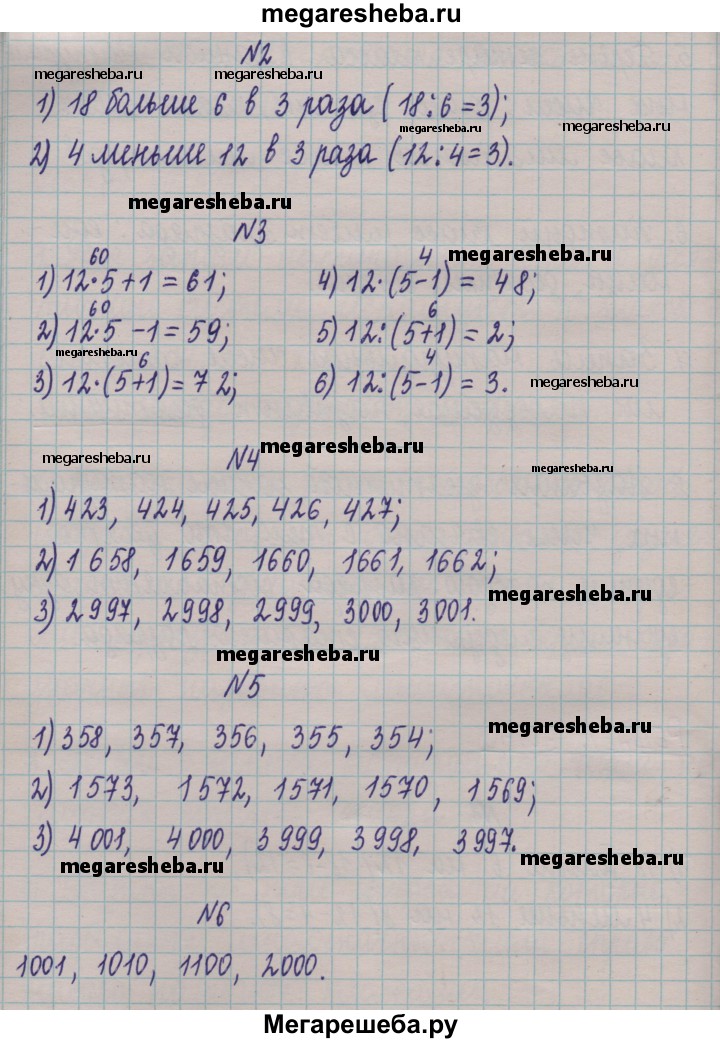 megaresheba.ru
N2
megaresheba.ru megaresheba.ru
1) 18 больше 6 в 3 раза (18:6=3);
megaresheba.ru megaresheba.ru
2) 4 меньше 12 в 3 раза (12:4=3).
megaresheba.ru
N3
megaresheba.ru
60 4
1) 12·5+1=61; 4) 12·(5-1)= 48;
60 6
2) 12·5-1=59; 5) 12:(5+1)=2;
megaresheba.ru
6 4
3) 12·(5+1)=72; 6) 12:(5-1)=3.
megaresheba.ru
megaresheba.ru N4 megaresheba.ru
megaresheba.ru
1) 423, 424, 425, 426, 427;
2) 1658, 1659, 1660, 1661, 1662;
megaresheba.ru
3) 2997, 2998, 2999, 3000, 3001.
megaresheba.ru
N5
megaresheba.ru
1) 358, 357, 356, 355, 354;
2) 1573, 1572, 1571, 1570, 1569;
3) 4001, 4000, 3999, 3998, 3997.
megaresheba.ru megaresheba.ru
N6
1001, 1010, 1100, 2000.
Мегарешеба.ру